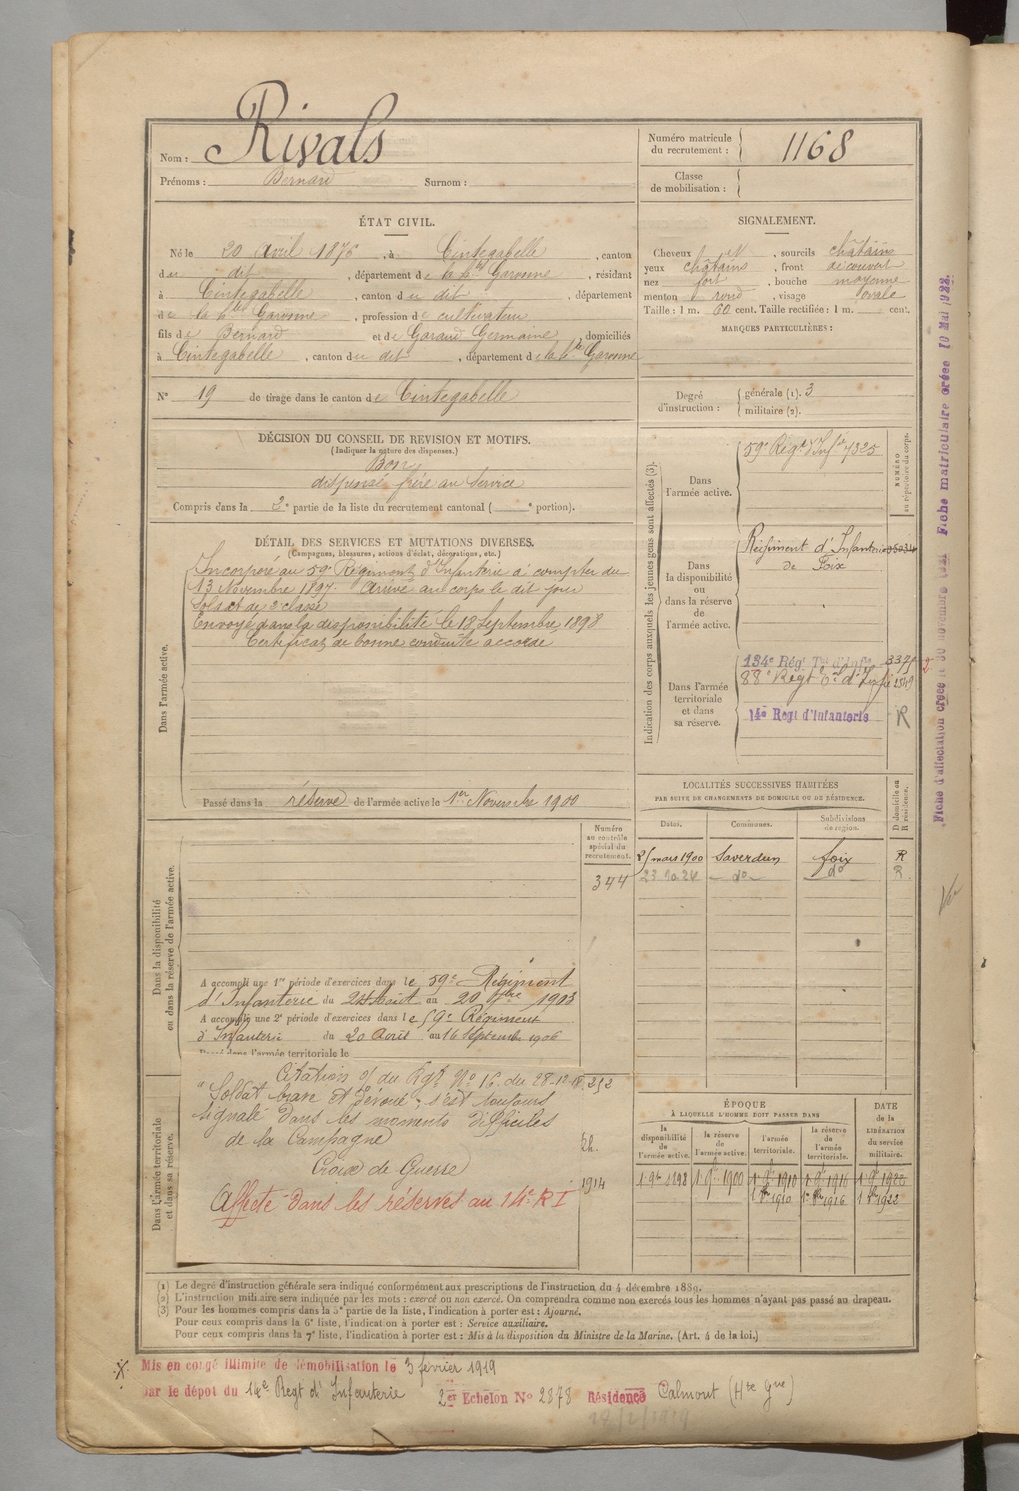 Nom : Rivals
Prénoms : Bernard Surnom :
Numéro matricule du recrutement : 1168
Classe de mobilisation :
ÉTAT CIVIL.
Né le 20 Avril 1876, à Cintegabelle, canton
du dit, département de la Hte Garonne, résidant
à Cintegabelle, canton du dit, département
de la Hte Garonne, profession de cultivateur
fils de Bernard et de Garaud Germaine, domiciliés
à Cintegabelle, canton du dit, département de la Hte Garonne
SIGNALEMENT.
Cheveux et, sourcils châtains
yeux châtains, front découvert
nez fort, bouche moyenne
menton rond, visage ovale
Taille : 1 m. 60 cent. Taille rectifiée : 1 m. cent.
MARQUES PARTICULIÈRES :
N° 19 de tirage dans le canton de Cintegabelle
Degré d'instruction : générale (1). 3
militaire (2).
DÉCISION DU CONSEIL DE REVISION ET MOTIFS.
(Indiquer la nature des dispenses.)
Bon
dispensé, frère au service
Compris dans la 3e partie de la liste du recrutement cantonal ( e portion).
DÉTAIL DES SERVICES ET MUTATIONS DIVERSES.
(Campagnes, blessures, actions d'éclat, décorations, etc.)
Dans l'armée active.
Incorporé au 59e Régiment d'Infanterie à compter du
13 Novembre 1897. Arrivé au corps le dit jour
Soldat de 2e classe
Envoyé dans la disponibilité le 18 Septembre 1898
Certificat de bonne conduite accordé
Passé dans la réserve de l'armée active le 1er Novembre 1900
Indication des corps auxquels les jeunes gens sont affectés (3).
NUMÉRO au répertoire du corps.
Dans l'armée active.
59e Régt d'Infie 7325
Dans la disponibilité ou dans la réserve de l'armée active.
Régiment d'Infanterie
de Foix
Dans l'armée territoriale et dans sa réserve.
134e Régt Tal d'Infie 3375
88e Regt d'Infie
14e Regt d'Infanterie R
LOCALITÉS SUCCESSIVES HABITÉES
PAR SUITE DE CHANGEMENTS DE DOMICILE OU DE RÉSIDENCE.
Dates. Communes. Subdivisions de région. D domicile ou R résidence.
25 mars 1900 Saverdun Foix R
23 10 24 do do R
Numéro au contrôle spécial du recrutement.
344
Dans la disponibilité ou dans la réserve de l'armée active.
A accompli une 1re période d'exercices dans le 59e Régiment
d'Infanterie du 24 Août au 20 7bre 1903
A accompli une 2e période d'exercices dans le 59e Régiment
d'Infanterie du 20 Août au 16 Septembre 1906
Passé dans l'armée territoriale le
Dans l'armée territoriale et dans sa réserve.
Citation o/ du Rgt No 16 du 28-12-18
"Soldat brave et dévoué ; s'est toujours
signalé dans les moments difficiles
de la Campagne
Croix de Guerre
Affecté dans les réserves au 14e R I
1914
ÉPOQUE
À LAQUELLE L'HOMME DOIT PASSER DANS
la disponibilité de l'armée active. la réserve de l'armée active. l'armée territoriale. la réserve de l'armée territoriale.
DATE de la LIBÉRATION du service militaire.
1 9bre 1898 1 9bre 1900 1 9bre 1910 1 9bre 1916
1910 1916 1922
(1) Le degré d'instruction générale sera indiqué conformément aux prescriptions de l'instruction du 4 décembre 1889.
(2) L'instruction militaire sera indiquée par les mots : exercé ou non exercé. On comprendra comme non exercés tous les hommes n'ayant pas passé au drapeau.
(3) Pour les hommes compris dans la 5e partie de la liste, l'indication à porter est : Ajourné.
Pour ceux compris dans la 6e liste, l'indication à porter est : Service auxiliaire.
Pour ceux compris dans la 7e liste, l'indication à porter est : Mis à la disposition du Ministre de la Marine. (Art. 4 de la loi.)
Mis en congé illimité de démobilisation le 3 février 1919
par le dépôt du 14e Regt d'Infanterie 2e Echelon No 2878 Résidence Calmont (Hte Gne)
Fiche d'affectation créée le 30 novembre Fiche matriculaire créée 10 Mai 1922.